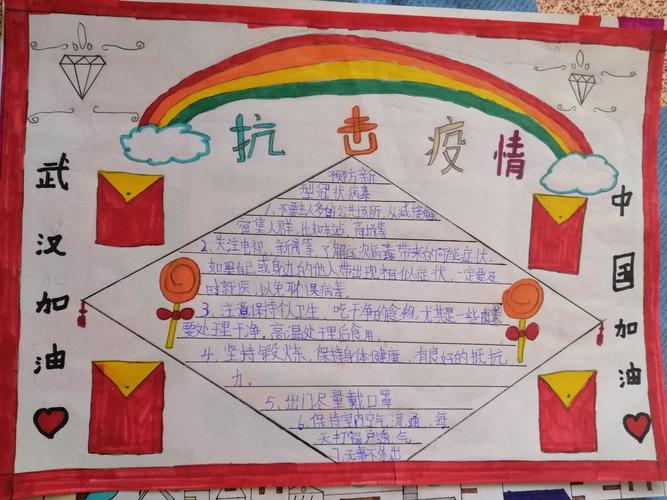 抗击疫情
武汉加油
中国加油
预防新
型冠状病毒
1、不要去人多的公共场所,从减接触
密集人群,比如车站,商场等
2、关注电视、新闻等,了解这次病毒带来的可能症状,
如果自己或身边的他人带出现相似症状,一定要及
时就医,以免耽误病毒。
3、注意保持个人卫生,吃干净的食物,尤其是一些肉类
要处理干净,高温处理后食用
4、坚持锻炼,保持身体健康,有良好的抵抗
力。
5、出门尽量戴口罩
6、保持室内空气流通,每
天打窗户透气
7、无事不外出